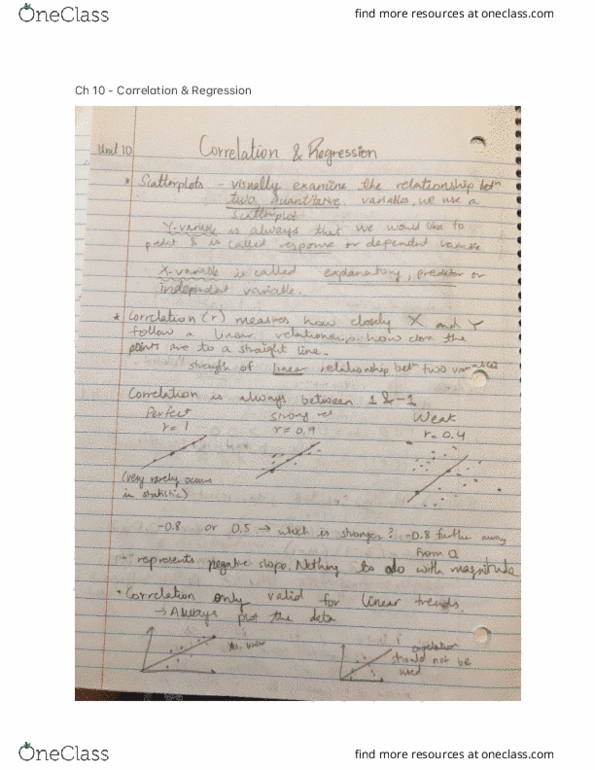 OneClass
find more resources at oneclass.com
Ch 10 – Correlation & Regression
Unit 10
Correlation & Regression
* Scatterplots - visually examine the relationship betn
two quantitative variables, we use a
scatterplot
Y-variable is always that we would like to
& is called response or dependent variable
X-variable is called explanatory, predictor or
independent variable.
* Correlation (r) measures how closely X and Y
follow a linear relationship, how close the
points are to a straight line.
strength of linear relationship betn two variables
Correlation is always between 1 & -1
Perfect
strong
Weak
r = 1
r = 0.9
r = 0.4
(very rarely occurs
in statistic)
-0.8 or 0.5 → which is stronger? -0.8 further away
from 0
- represents negative slope. Nothing to do with magnitude
• Correlation only valid for linear trends.
→ Always plot the data
correlation
should not be
used
OneClass
find more resources at oneclass.com